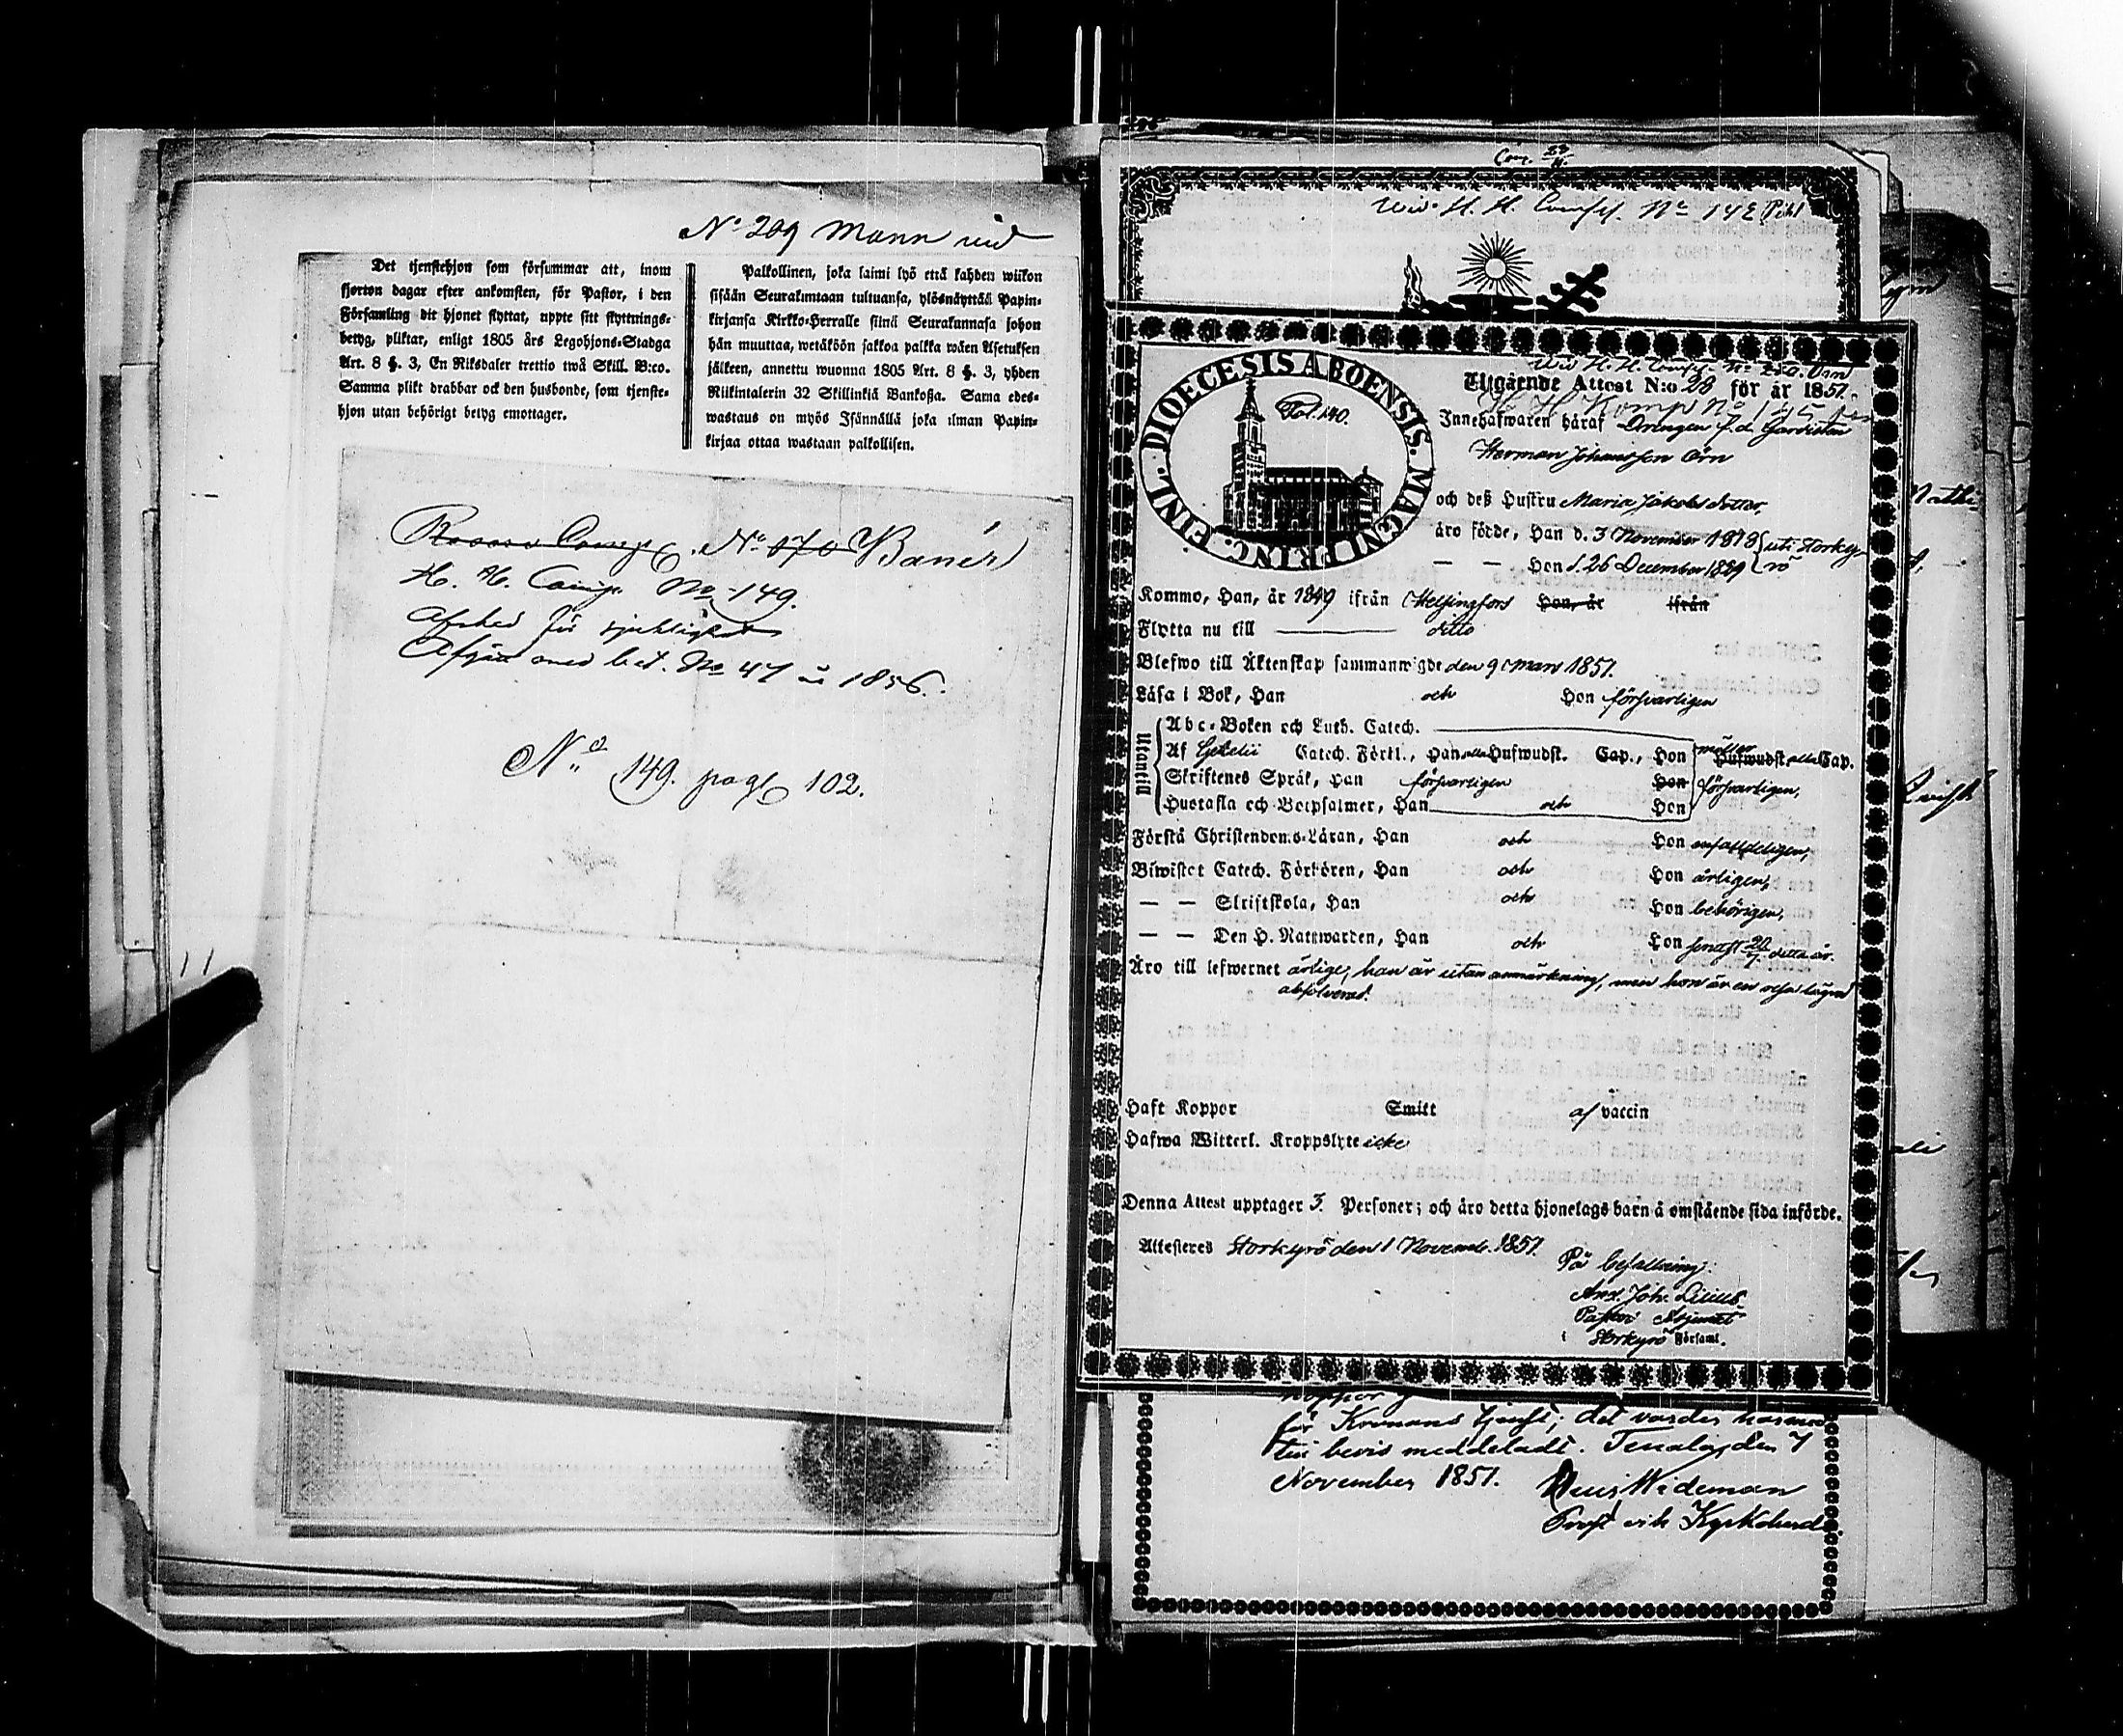 No 209 Mann vid
Det tjenstehjon som försummar att, inom
fjorton dagar efter ankomsten, för Pastor, i den
Församling dit hjonet flyttat, uppte sitt flyttnings-
betyg, pliktar, enligt 1805 års Legohjons-Stadga
Art. 8 §. 3, En Riksdaler trettio twå Skill. B:co.
Samma plikt drabbar ock den husbonde, som tjenste-
hjon utan behörigt betyg emottager.
Palkollinen, joka laimi lyö että kahden wiikon
sisään Seurakuntaan tultuansa, ylösnäyttää Papin-
kirjansa Kirkko-Herralle siinä Seurakunnasa johon
hän muuttaa, wetäköön sakkoa palkka wäen Asetuksen
jälkeen, annettu wuonna 1805 Art. 8 §. 3, yhden
Riikintalerin 32 Skillinkiä Bankoßa. Sama edes-
wastaus on myös Isännällä joka ilman Papin-
kirjaa ottaa wastaan palkollisen.
No 070 Banér
H. H. Comp. No 149.
Afsked för sjuklighet
Afgått med bet. No 47 1856.
No 149. pag 102.
Comp.
Wid H. H. Compl. No 142 Pihl
Wid H. H. Comp. No Örn
DIOECESIS ABOENSIS. MAGNI PRINC. FINL.
Fol. 140.
Utgående Attest N:o 28 för år 1851.
H H Komp No
Innehafwaren häraf Drengen f. d. Gardisten
Herman Johansson Örn
och deß Hustru Maria Jakobsdotter,
äro födde, Han d. 3 November 1818 uti Storky-
— — Hon d. 26 December 1829 rö
Kommo, Han, år 1849 ifrån Helsingfors Hon, år ifrån
Flytta nu till ditto
Blefwo till Äktenskap sammanwigde den 9 Mars 1851.
Läsa i Bok, Han och Hon försvarligen
Utantill
Abc-Boken och Luth. Catech.
Af Gezelii Catech. Förkl., Han alla Hufwudst. Cap., Hon Hufwudst. alla Cap.
Skriftenes Språk, Han försvarligen Hon försvarligen,
Hustafla och Botpsalmer, Han och Hon
Förstå Christendoms-Läran, Han och Hon enfaldeligen,
Biwistat Catech. Förhören, Han och Hon årligen,
— — Skriftskola, Han och Hon behörigen,
— — Den H. Nattwarden, Han och Hon senast 20/7 detta år.
Äro till lefwernet ärlige, han är utan anmärkning, men hon är en lägrad
absolverad.
Haft Koppor Smitt af vaccin
Hafwa Witterl. Kroppslyte icke
Denna Attest upptager 3. Personer; och äro detta hjonelags barn å omstående sida införde.
Attesteres Storkyrö den 1 Novemb. 1851.
På befallning:
And. Joh. Lilius
Pastors Adjunct
i Storkyrö Församl.
för Kronans tjenst; det varder härmed
till bevis meddeladt. Tenala, den 7
November 1851. Wideman
Prost och Kyrkoherde